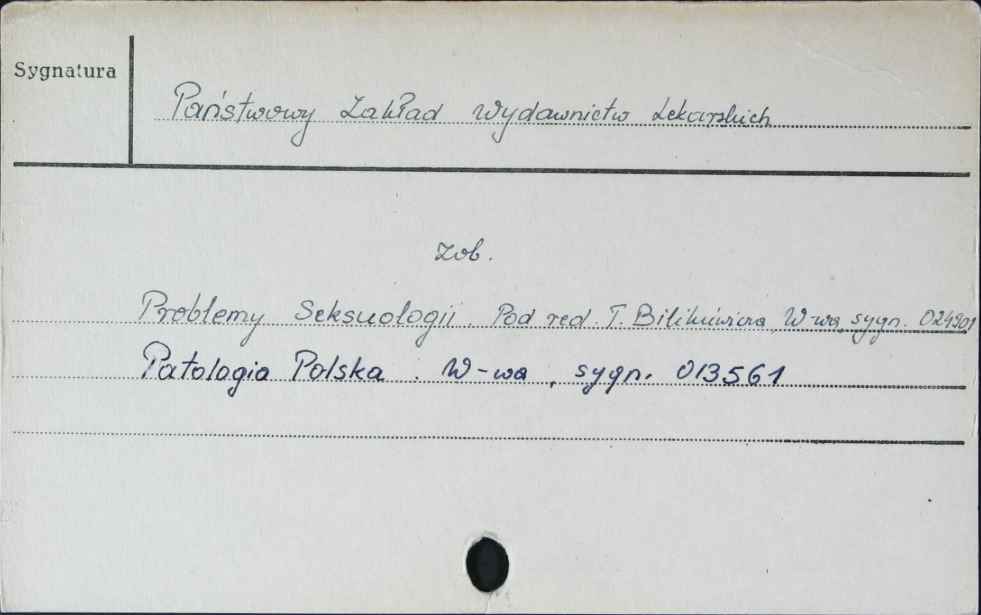 Sygnatura
Państwowy Zakład Wydawnictw Lekarskich
Zob.
Problemy Seksuologii. Pod red. T. Bilikiewicza, W-wa, sygn. 024901
Patologia Polska. W-wa, sygn. 013561